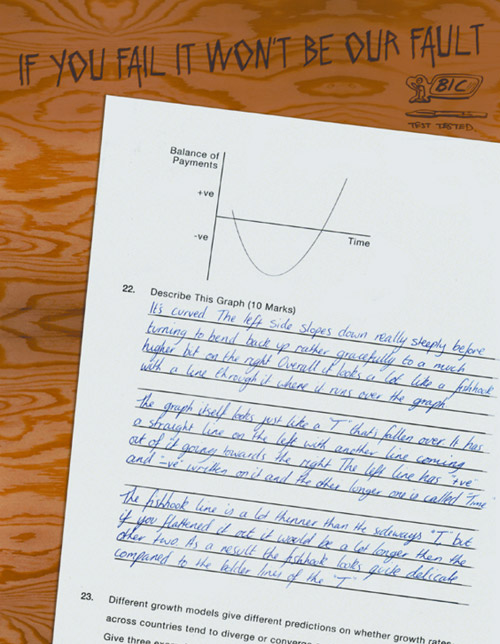 IF YOU FAIL IT WON'T BE OUR FAULT
BIC
TEST TESTED
Balance of
Payments
+ve
-ve
Time
22. Describe This Graph (10 Marks)
It's curved The left side slopes down really steeply before
turning to bend back up rather gracefully to a much
higher bit on the right Overall it looks a lot like a fishhook
with a line through it where it runs over the graph
The graph itself looks just like a "T" that's fallen over It has
a straight line on the left with another line coming
out of it going towards the right The left line has "+ve"
and "-ve" written on it and the other longer one is called "Time"
The fishhook line is a lot thinner than the sideways "T" but
if you flattened it out it would be a lot longer than the
other two As a result the fishhook looks quite delicate
compared to the bolder lines of the "T"
23. Different growth models give different predictions on whether growth rates
across countries tend to diverge or
Give three